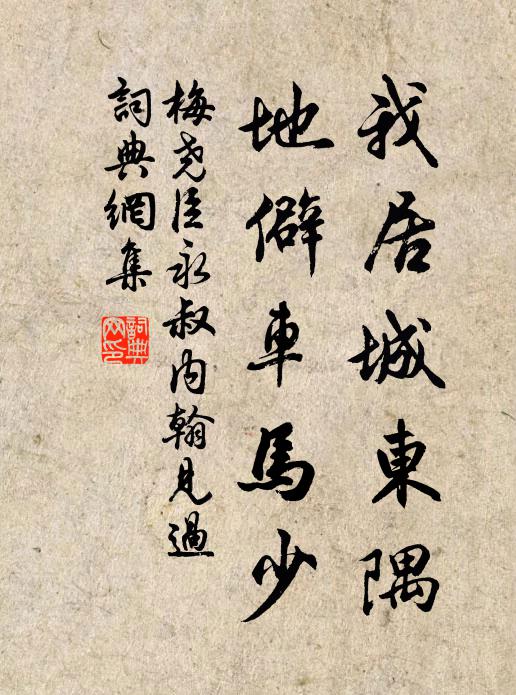 我居城東隅
地僻車馬少
梅尧臣永叔内翰見過
詞典網集
詞典
网印